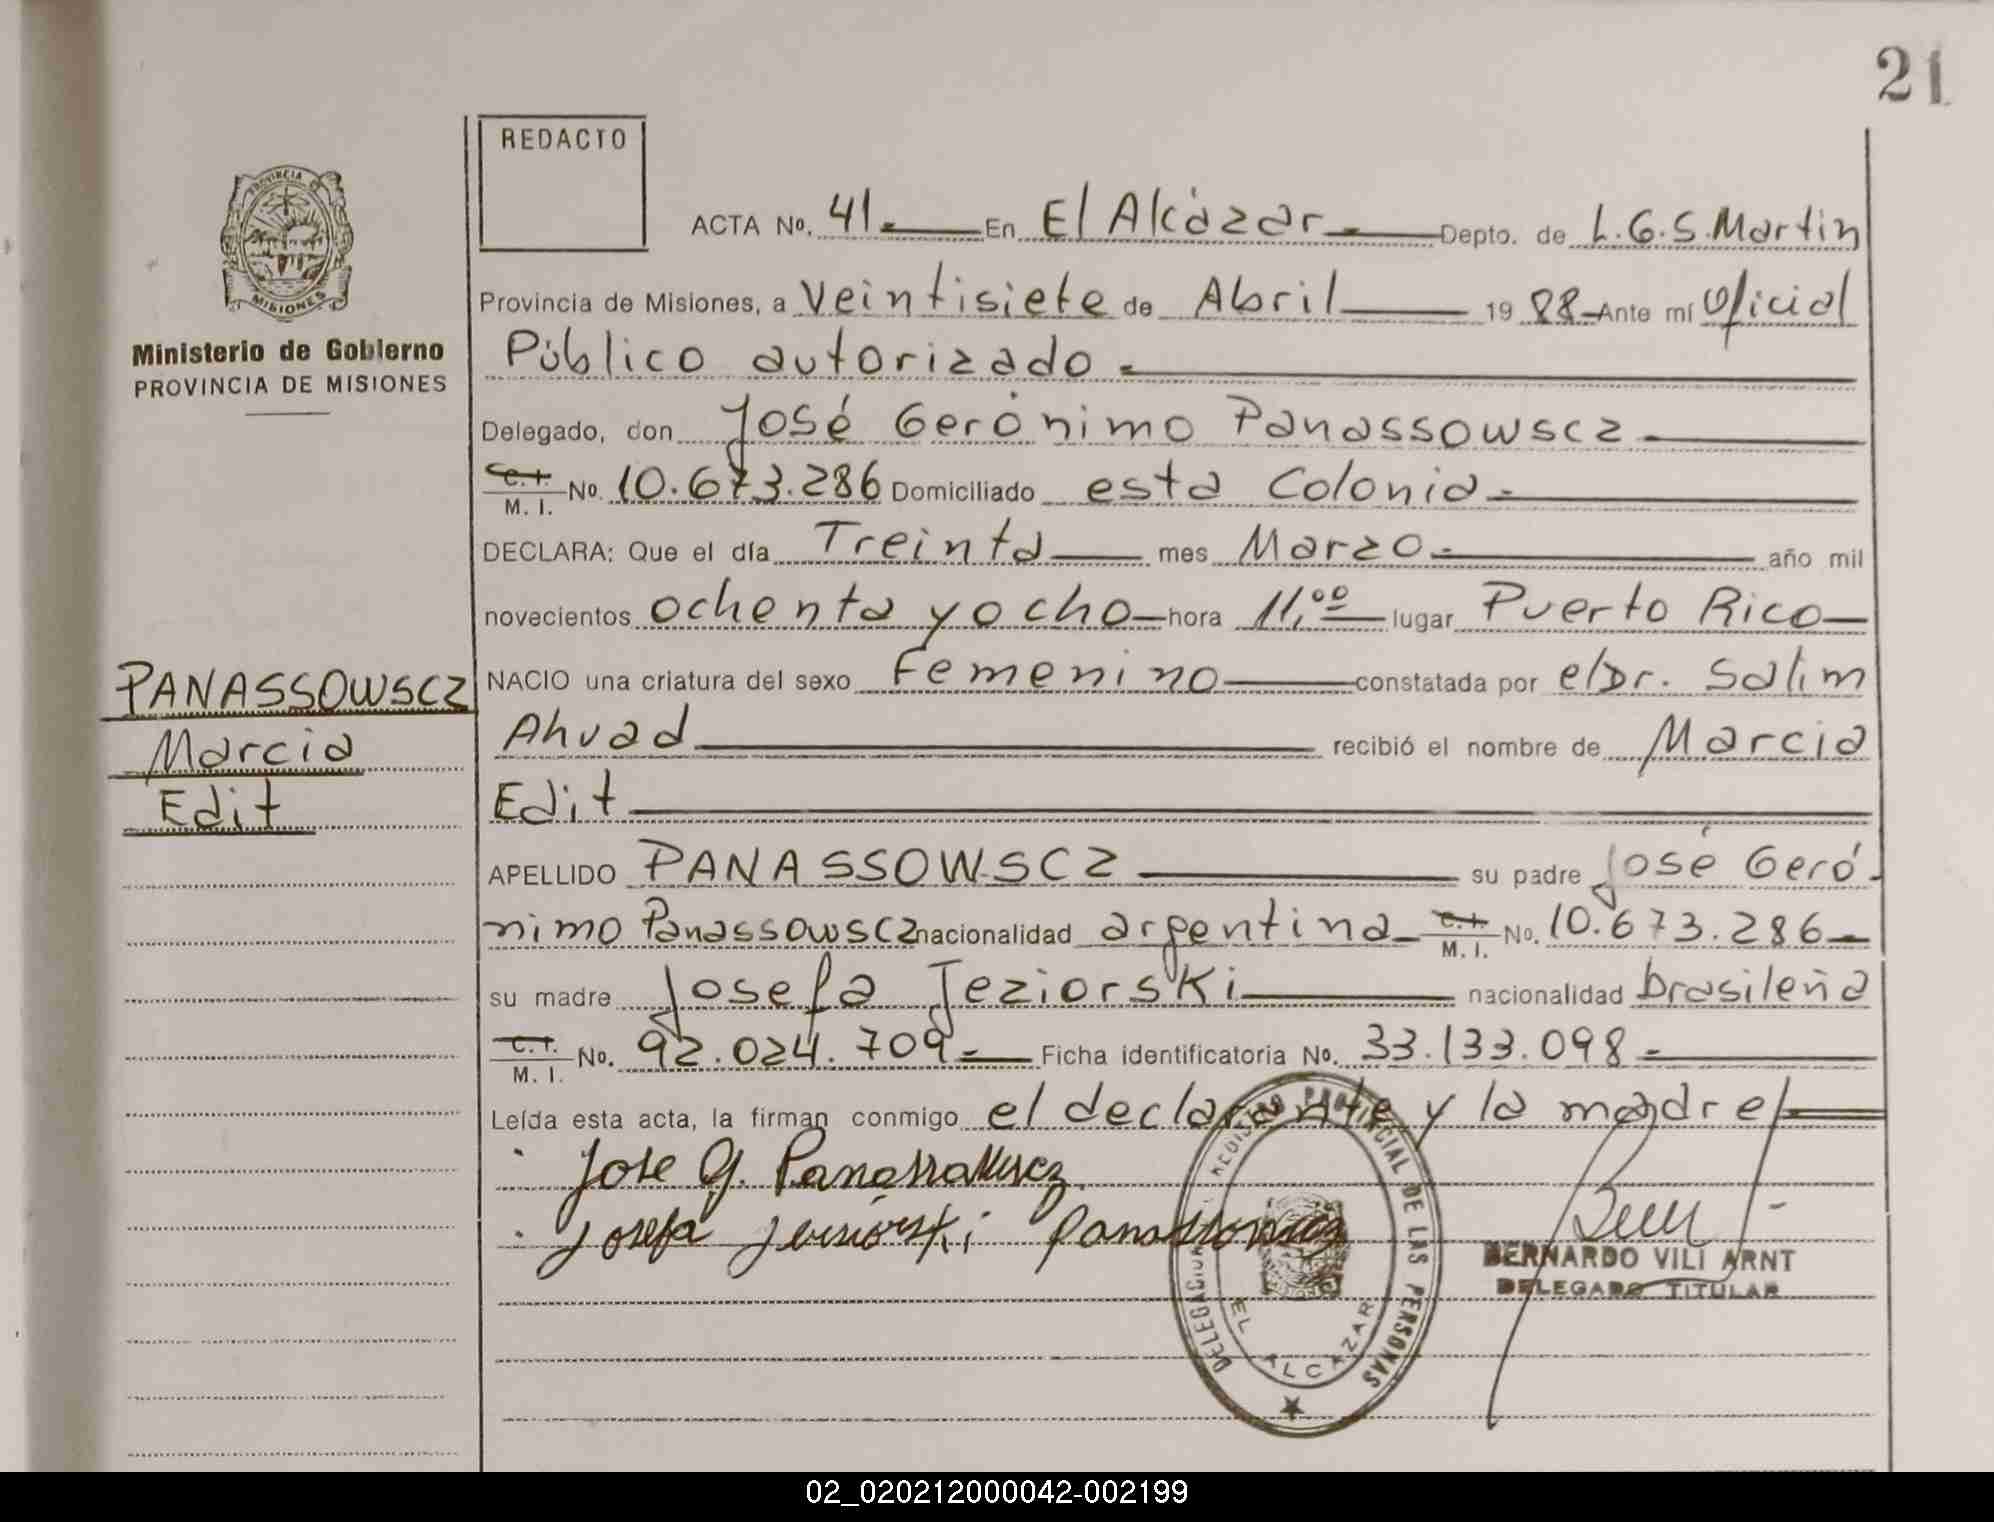 21
REDACTO
PROVINCIA DE
MISIONES
Ministerio de Gobierno
PROVINCIA DE MISIONES
ACTA No. 41.- En El Alcázar.- Depto. de L.G.S. Martin
Provincia de Misiones, a Veintisiete de Abril 1988- Ante mí Oficial
Público autorizado.-
Delegado, don José Gerónimo Panassowscz.-
C.I. M. I. No. 10.673.286 Domiciliado esta Colonia.-
DECLARA: Que el día Treinta mes Marzo.- año mil
novecientos ochenta y ocho- hora 11,00 lugar Puerto Rico-
NACIO una criatura del sexo Femenino constatada por el Dr. Salim
Ahuad recibió el nombre de Marcia
Edit
PANASSOWSCZ
Marcia
Edit
APELLIDO PANASSOWSCZ su padre José Geró-
nimo Panassowscz nacionalidad argentina- C.I. M. I. No. 10.673.286-
su madre Josefa Jeziorski nacionalidad brasileña
C.I. M. I. No. 92.024.709.- Ficha identificatoria No. 33.133.098.-
Leída esta acta, la firman conmigo el declarante y la madre
Jose G. Panassowscz
Josefa Jeziorski Panassowscz
DELEGACION REGISTRO PROVINCIAL DE LAS PERSONAS
EL ALCAZAR
BERNARDO VILI ARNT
DELEGADO TITULAR
02_020212000042-002199